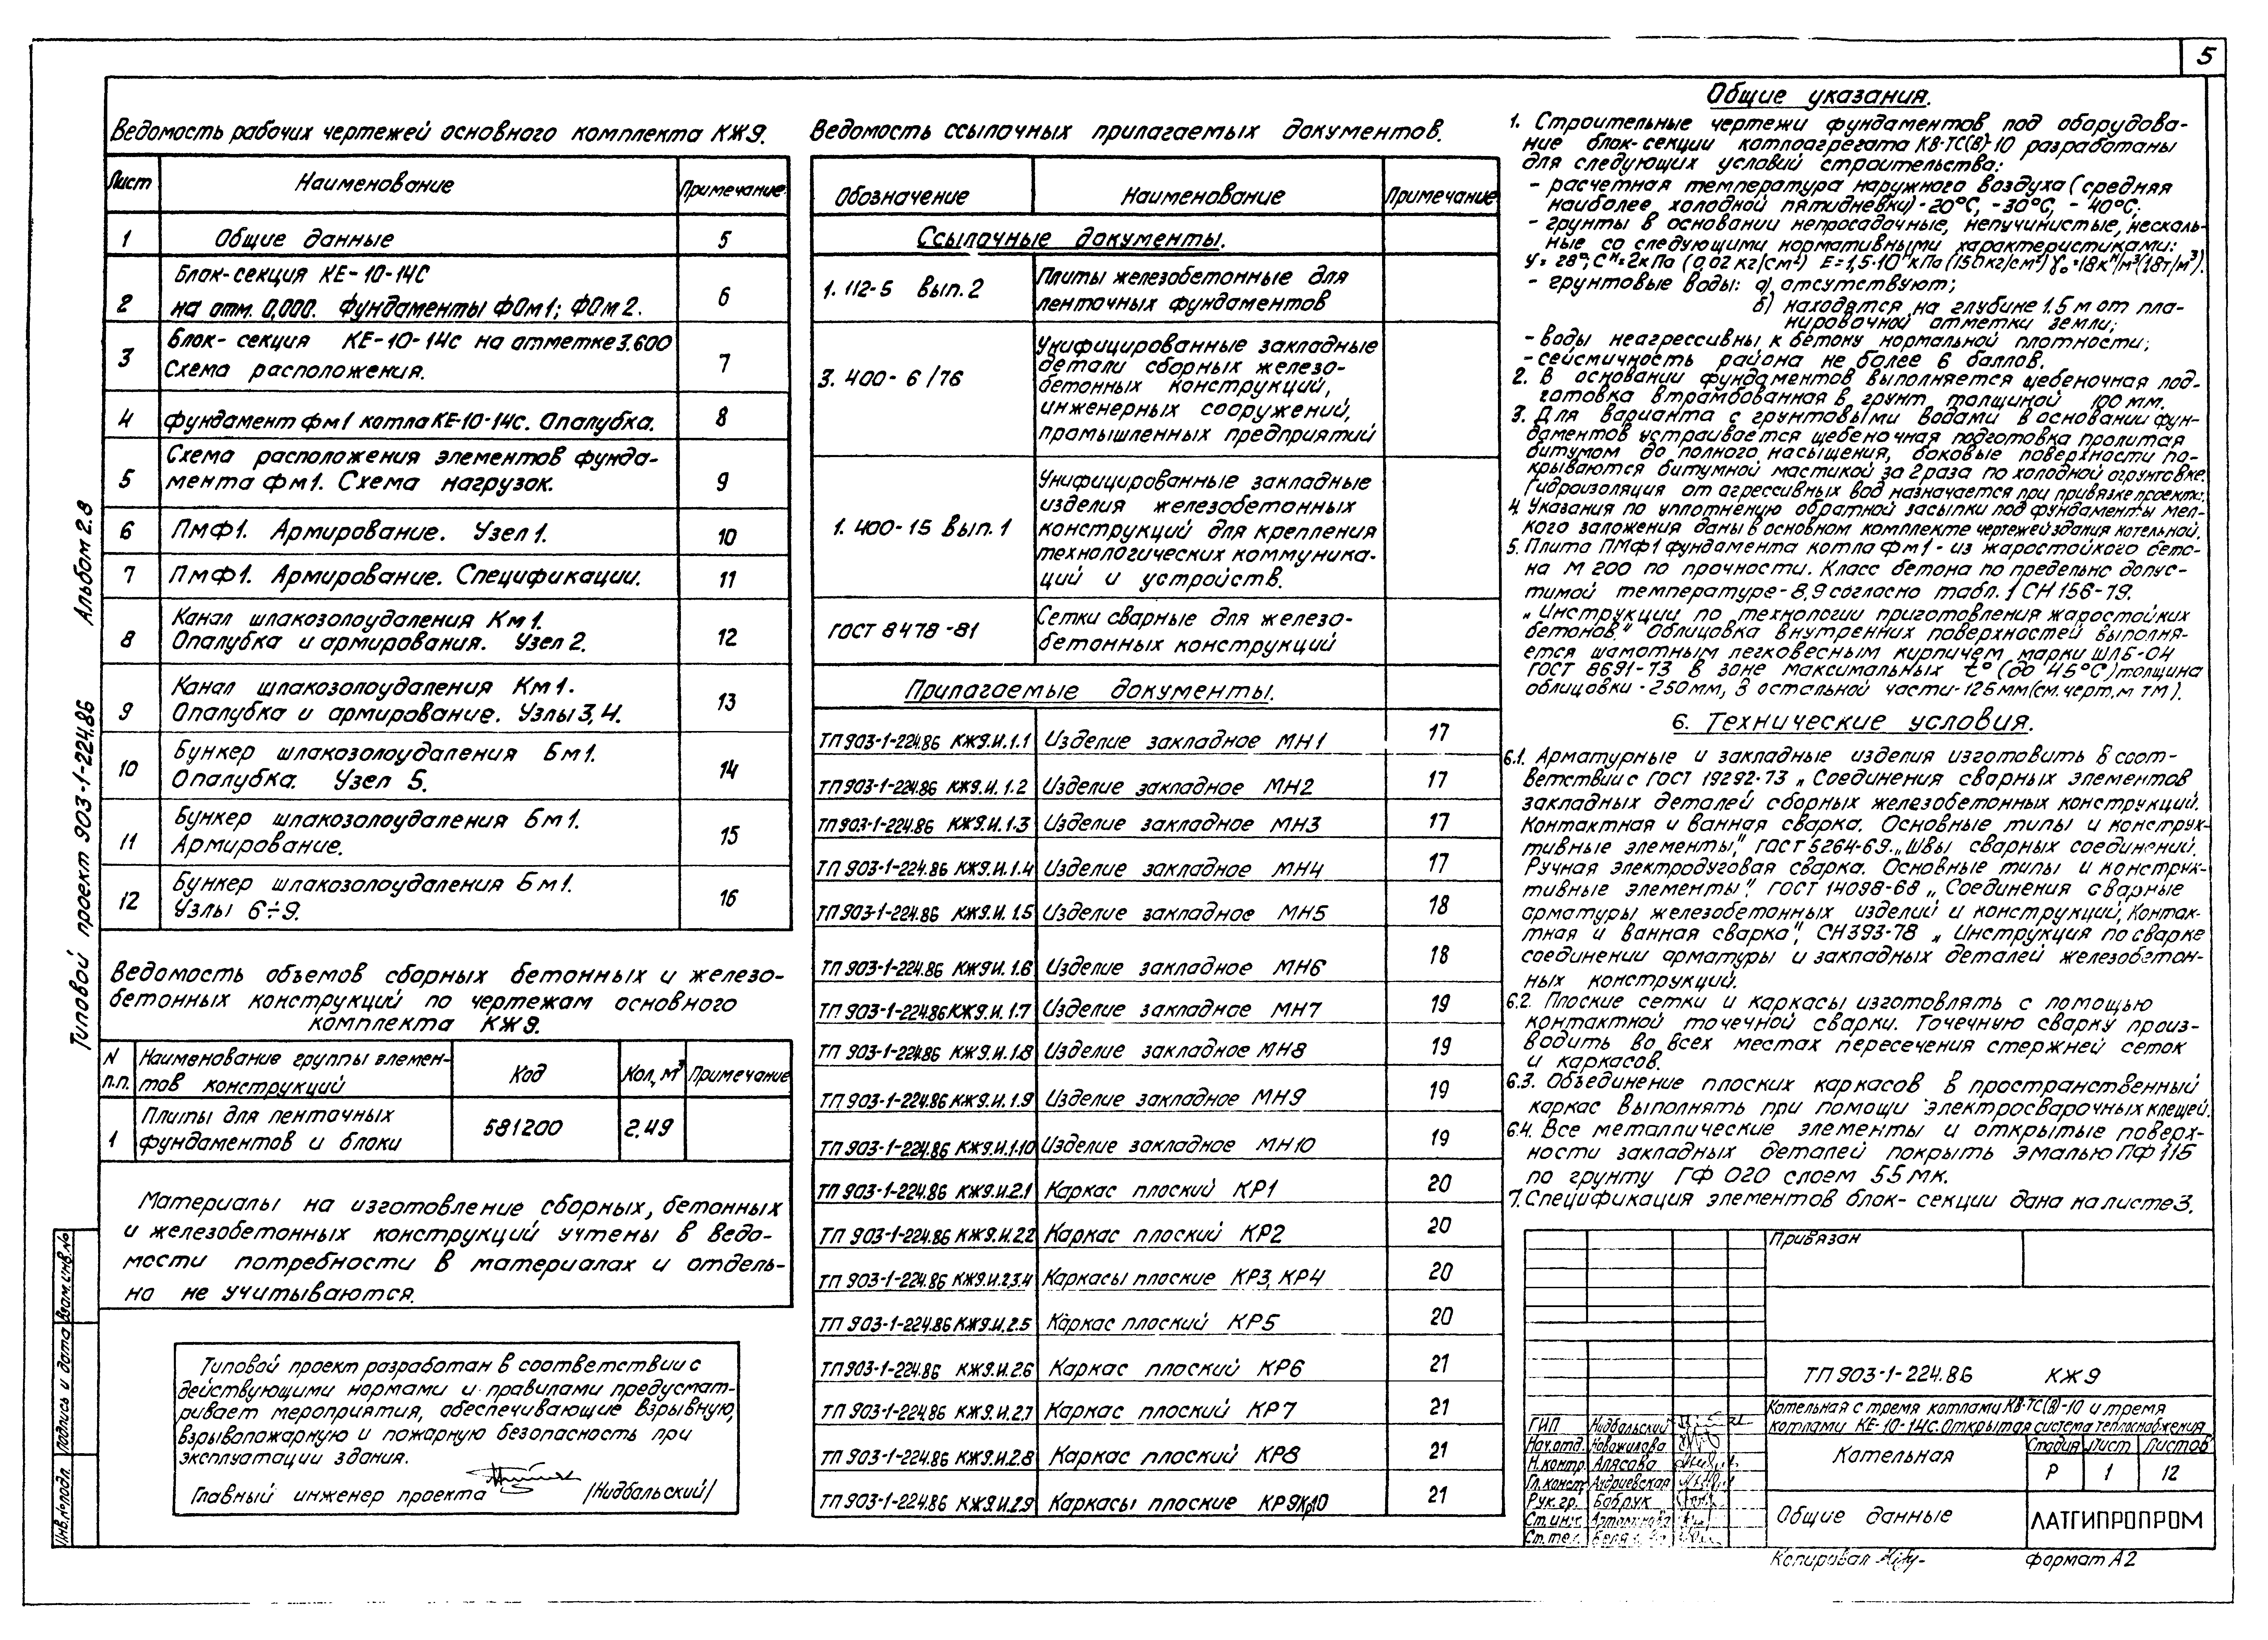 5
Ведомость рабочих чертежей основного комплекта КЖ9.
Лист Наименование Примечание
1 Общие данные 5
Блок-секция КЕ-10-14С
2 на отм. 0,000. Фундаменты ФОм1; ФОм2. 6
Блок-секция КЕ-10-14С на отметке 3.600
3 Схема расположения. 7
4 Фундамент Фм1 котла КЕ-10-14С. Опалубка. 8
Схема расположения элементов фунда-
5 мента Фм1. Схема нагрузок. 9
6 ПмФ1. Армирование. Узел 1. 10
7 ПмФ1. Армирование. Спецификации. 11
Канал шлакозолоудаления Км1.
8 Опалубка и армирования. Узел 2. 12
Канал шлакозолоудаления Км1.
9 Опалубка и армирование. Узлы 3,4. 13
Бункер шлакозолоудаления Бм1.
10 Опалубка. Узел 5. 14
Бункер шлакозолоудаления Бм1.
11 Армирование. 15
Бункер шлакозолоудаления Бм1.
12 Узлы 6÷9. 16
Ведомость объемов сборных бетонных и железо-
бетонных конструкций по чертежам основного
комплекта КЖ9.
N п.п. Наименование группы элемен- Код Кол, м³ Примечание
тов конструкций
Плиты для ленточных
1 фундаментов и блоки 581200 2.49
Материалы на изготовление сборных, бетонных
и железобетонных конструкций учтены в ведо-
мости потребности в материалах и отдель-
но не учитываются.
Типовой проект разработан в соответствии с
действующими нормами и правилами предусмат-
ривает мероприятия, обеспечивающие взрывную,
взрывопожарную и пожарную безопасность при
эксплуатации здания.
Главный инженер проекта /Нидбальский/
Ведомость ссылочных прилагаемых документов.
Обозначение Наименование Примечание
Ссылочные документы.
1. 112-5 Вып. 2 Плиты железобетонные для
ленточных фундаментов
3. 400-6/76 Унифицированные закладные
детали сборных железо-
бетонных конструкций,
инженерных сооружений,
промышленных предприятий
1. 400-15 Вып. 1 Унифицированные закладные
изделия железобетонных
конструкций для крепления
технологических коммуника-
ций и устройств.
ГОСТ 8478-81 Сетки сварные для железо-
бетонных конструкций
Прилагаемые документы.
ТП 903-1-224.86 КЖ9.И.1.1 Изделие закладное МН1 17
ТП 903-1-224.86 КЖ9.И.1.2 Изделие закладное МН2 17
ТП 903-1-224.86 КЖ9.И.1.3 Изделие закладное МН3 17
ТП 903-1-224.86 КЖ9.И.1.4 Изделие закладное МН4 17
ТП 903-1-224.86 КЖ9.И.1.5 Изделие закладное МН5 18
ТП 903-1-224.86 КЖ9И.1.6 Изделие закладное МН6 18
ТП 903-1-224.86 КЖ9.И.1.7 Изделие закладное МН7 19
ТП 903-1-224.86 КЖ9.И.1.8 Изделие закладное МН8 19
ТП 903-1-224.86 КЖ9.И.1.9 Изделие закладное МН9 19
ТП 903-1-224.86 КЖ9.И.1.10 Изделие закладное МН10 19
ТП 903-1-224.86 КЖ9.И.2.1 Каркас плоский КР1 20
ТП 903-1-224.86 КЖ9.И.2.2 Каркас плоский КР2 20
ТП 903-1-224.86 КЖ9.И.2.3.4 Каркасы плоские КР3, КР4 20
ТП 903-1-224.86 КЖ9.И.2.5 Каркас плоский КР5 20
ТП 903-1-224.86 КЖ9.И.2.6 Каркас плоский КР6 21
ТП 903-1-224.86 КЖ9.И.2.7 Каркас плоский КР7 21
ТП 903-1-224.86 КЖ9.И.2.8 Каркас плоский КР8 21
ТП 903-1-224.86 КЖ9.И.2.9 Каркасы плоские КР9Кр10 21
Общие указания.
1. Строительные чертежи фундаментов под оборудова-
ние блок-секции котлоагрегата КВ-ТС(В)-10 разработаны
для следующих условий строительства:
- расчетная температура наружного воздуха (средняя
наиболее холодной пятидневки) -20°С, -30°С, -40°С;
- грунты в основании непросадочные, непучинистые, нескаль-
ные со следующими нормативными характеристиками:
φ= 28°; Cᴴ=2кПа (0,02 кг/см²) Е=1,5·10⁴кПа (150кг/см²) γ₀=18кН/м³(1.8т/м³).
- грунтовые воды: а) отсутствуют;
б) находятся на глубине 1.5 м от пла-
нировочной отметки земли;
- воды неагрессивны к бетону нормальной плотности;
- сейсмичность района не более 6 баллов.
2. В основании фундаментов выполняется щебеночная под-
готовка втрамбованная в грунт толщиной 100 мм.
3. Для варианта с грунтовыми водами в основании фун-
даментов устраивается щебеночная подготовка пролитая
битумом до полного насыщения, боковые поверхности по-
крываются битумной мастикой за 2 раза по холодной огрунтовке.
Гидроизоляция от агрессивных вод назначается при привязке проекта.
4. Указания по уплотнению обратной засыпки под фундаменты мел-
кого заложения даны в основном комплекте чертежей здания котельной.
5. Плита ПМФ1 фундамента котла Фм1 - из жаростойкого бето-
на М 200 по прочности. Класс бетона по предельно допус-
тимой температуре - 8,9 согласно табл. 1 СН 156-79.
„Инструкции по технологии приготовления жаростойких
бетонов." Облицовка внутренних поверхностей выполня-
ется шамотным легковесным кирпичем марки ШЛБ-04
ГОСТ 8691-73 в зоне максимальных t° (до 45°С) толщина
облицовки - 250мм, в остальной части - 125 мм (см. черт. м ТМ).
6. Технические условия.
6.1. Арматурные и закладные изделия изготовить в соот-
ветствии с ГОСТ 19292-73 „Соединения сварных элементов
закладных деталей сборных железобетонных конструкций.
Контактная и ванная сварка. Основные типы и конструк-
тивные элементы", ГОСТ 5264-69. „Швы сварных соединений.
Ручная электродуговая сварка. Основные типы и конструк-
тивные элементы". ГОСТ 14098-68 „Соединения сварные
арматуры железобетонных изделий и конструкций, Контак-
тная и ванная сварка", СН393-78 „Инструкция по сварке
соединений арматуры и закладных деталей железобетон-
ных конструкций.
6.2. Плоские сетки и каркасы изготовлять с помощью
контактной точечной сварки. Точечную сварку произ-
водить во всех местах пересечения стержней сеток
и каркасов.
6.3. Объединение плоских каркасов в пространственный
каркас выполнять при помощи электросварочных клещей.
6.4. Все металлические элементы и открытые поверх-
ности закладных деталей покрыть эмалью ПФ 115
по грунту ГФ 020 слоем 55 мк.
7. Спецификация элементов блок-секции дана на листе 3.
Привязан
ТП 903-1-224.86 КЖ9
Котельная с тремя котлами КВ-ТС(В)-10 и тремя
котлами КЕ-10-14С. Открытая система теплоснабжения
ГИП Нидбальский
Нач.отд. Новожилова
Н.контр. Алясова
Гл.конст. Андриевская
Рук.гр. Бобрук
Ст.инж.
Ст.тех.
Котельная Стадия Лист Листов
Р 1 12
Общие данные ЛАТГИПРОПРОМ
Копировал формат А2
Типовой проект 903-1-224.86 Альбом 2.8
Инв.№подл. Подпись и дата Взам.инв.№